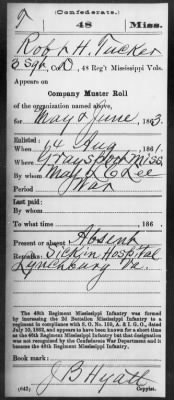 (Confederate.)
T 48 Miss.
Robt H. Tucker
Sgt, Co. D, 48 Reg't Mississippi Vols.
Appears on
Company Muster Roll
of the organization named above,
for May & June, 1863.
Enlisted:
When 14 Aug, 1861.
Where Grayspoort Miss.
By whom Maj L C Lee
Period War
Last paid:
By whom
To what time , 186 .
Present or absent Absent
Remarks: Sick in Hospital
Lynchburg Va.
The 48th Regiment Mississippi Infantry was
formed by increasing the 2d Battalion Mississippi Infantry to a
regiment in compliance with S. O. No.
, A. & I. G. O., dated
and appears to have been known for a short time
as the 66th Regiment Mississippi Infantry but that designation
was not recognized by the Confederate War Department and it
became the 48th Regiment Mississippi Infantry.
Book mark:
J B Hyatt
(642) Copyist.